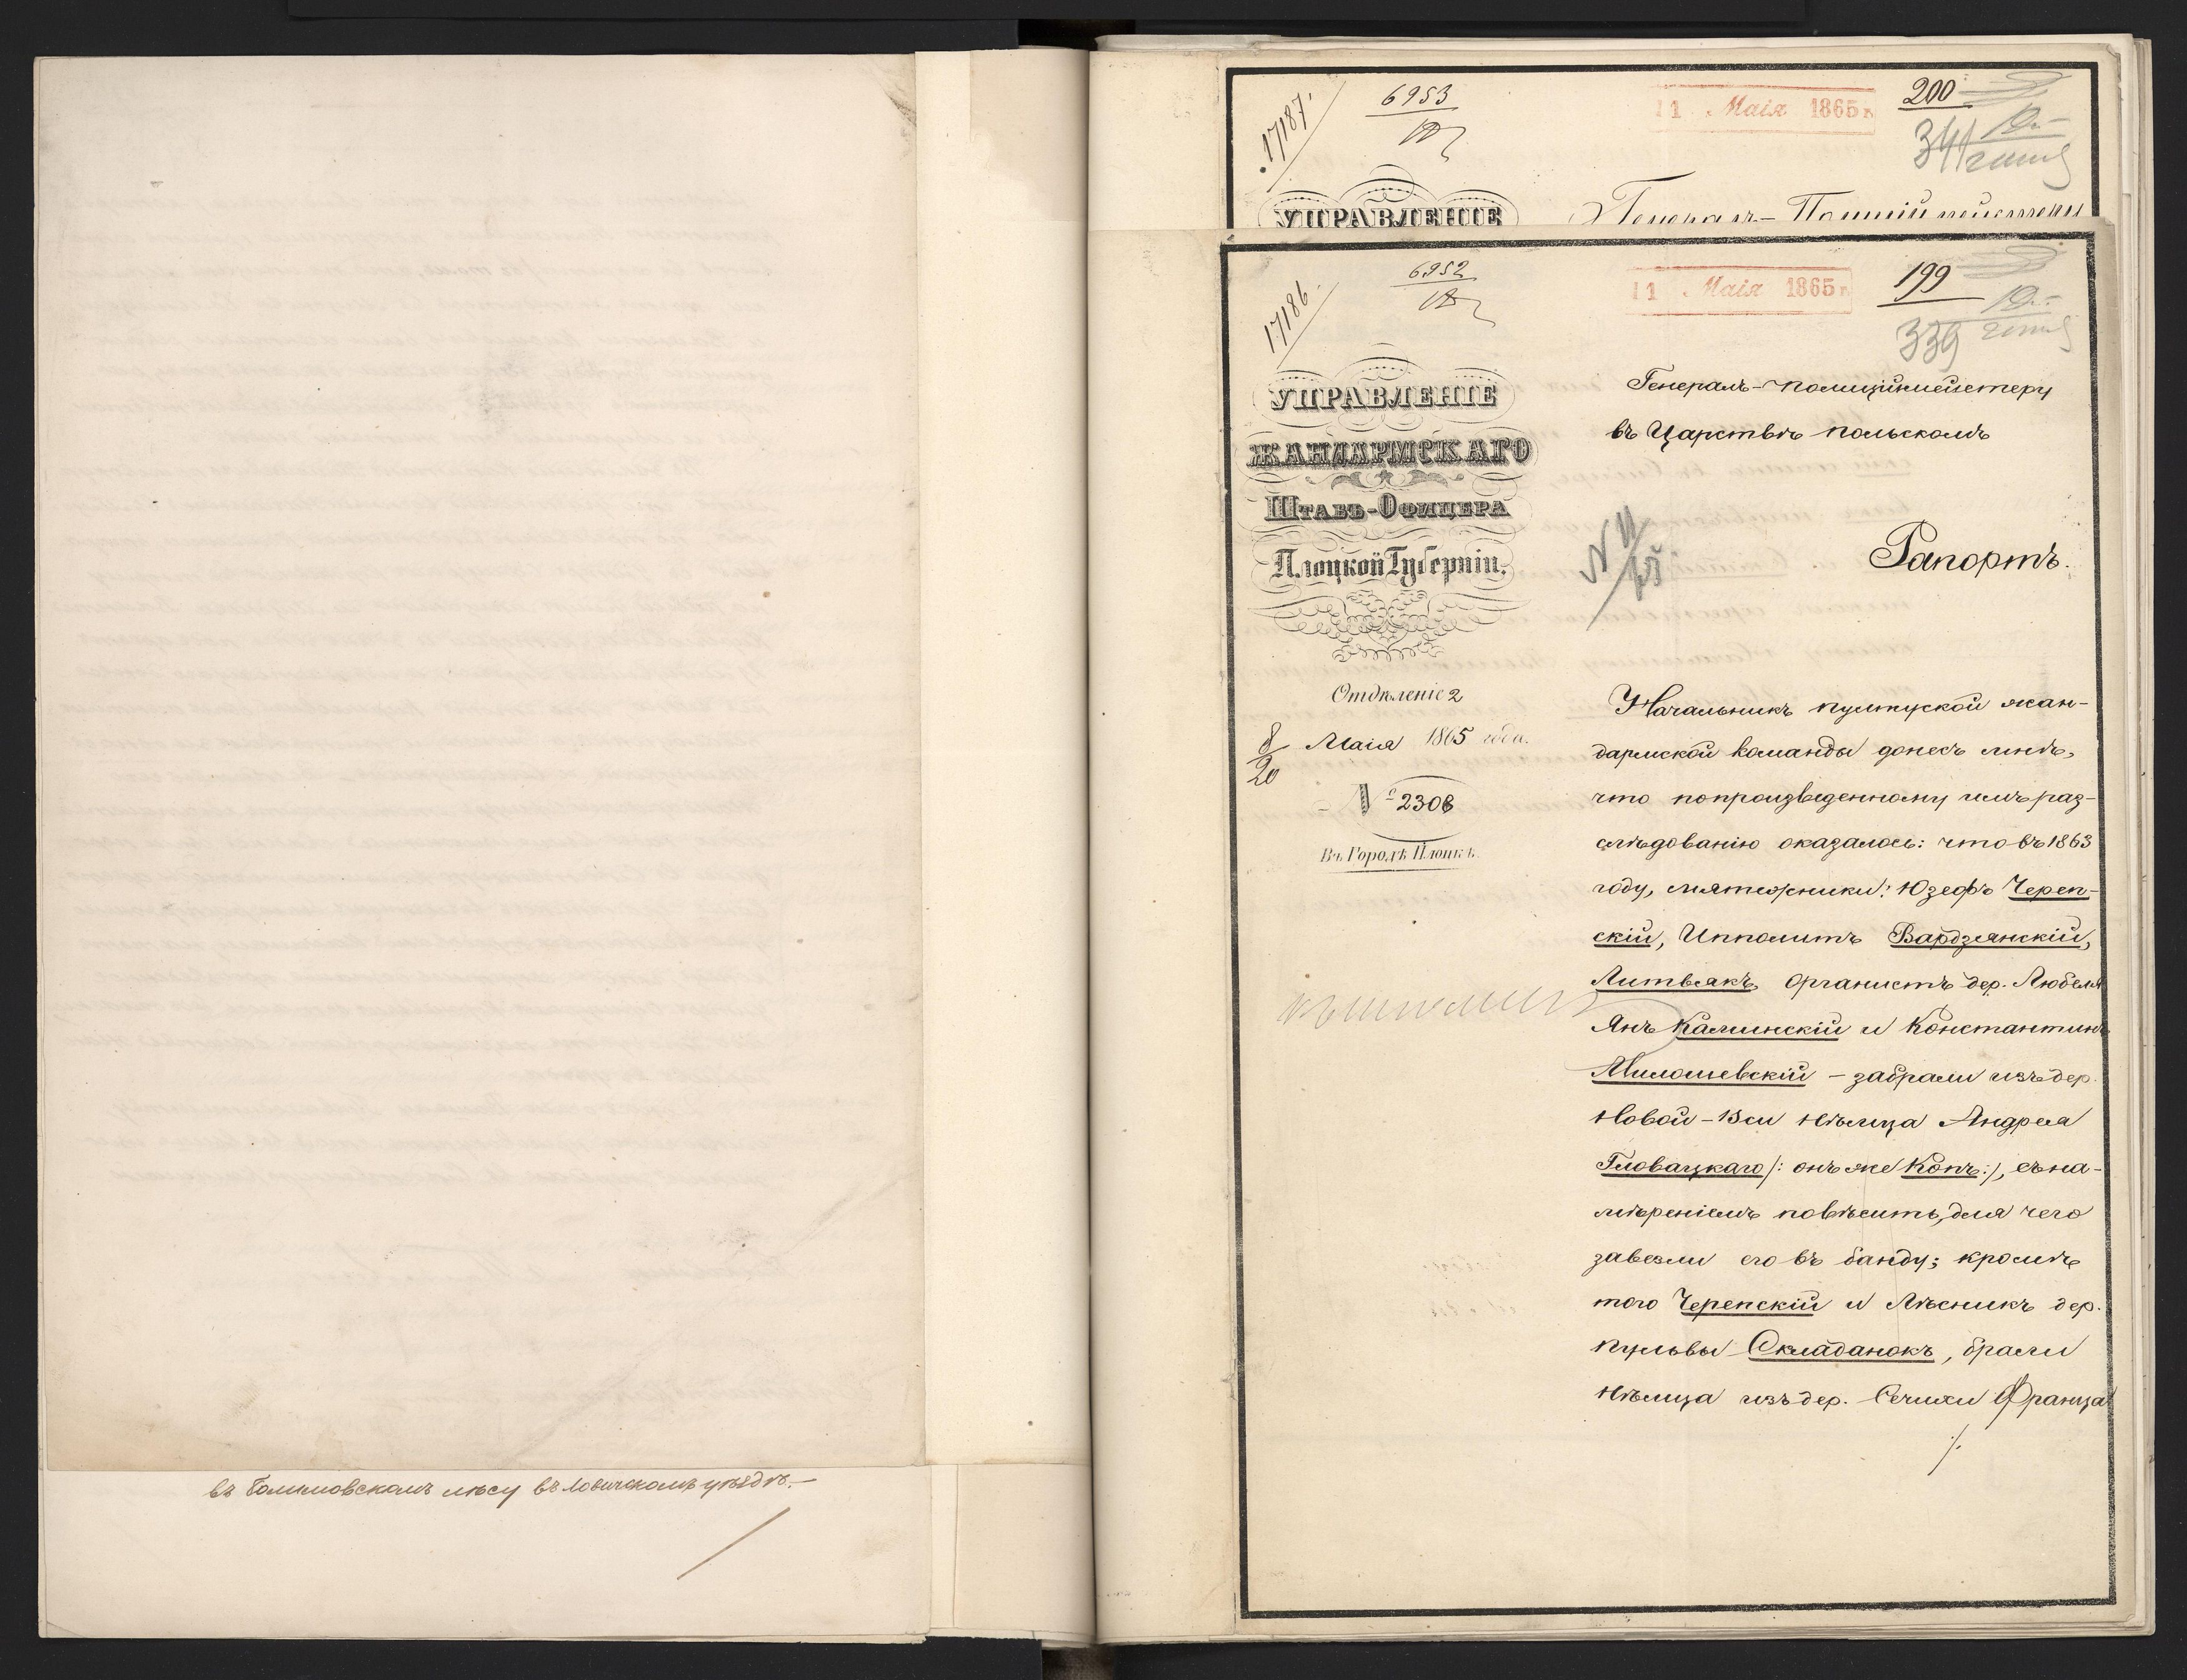 въ Болимовскомъ лѣсу въ Ловичскомъ уѣздѣ.—
17187.
6953
11 Маія 1865 г.
200
341
УПРАВЛЕНІЕ
Генералъ-Полиціймейстеру
17186.
6952
11 Маія 1865 г.
199
339
УПРАВЛЕНІЕ
ЖАНДАРМСКАГО
ШТАБЪ-ОФИЦЕРА
Плоцкой Губерніи.
Отдѣленіе 2
8/20 Маія 1865 года.
№ 2308
Въ Городѣ Плоцкѣ.
Генералъ-полиціймейстеру
въ Царствѣ польскомъ
Рапортъ.
Начальникъ пултуской жан-
дармской команды донесъ мнѣ,
что попроизведенному имъ раз-
слѣдованію оказалось: что въ 1863
году, мятежники: Юзефъ Череп-
скій, Ипполитъ Вардзянскій,
Литвякъ, Органистъ дер. Любеля
Янъ Калинскій и Константинъ
Милошевскій – забрали изъ дер.
Новой-Вси Нѣмца Андрея
Гловацкаго /: онъ же Копъ :/, съ на-
мѣреніемъ повѣсить, для чего
завезли его въ банду; кромѣ
того Черепскій и Лѣсникъ дер.
Пульвы Складанокъ, брали
Нѣмца изъ дер. Сечихи Франца